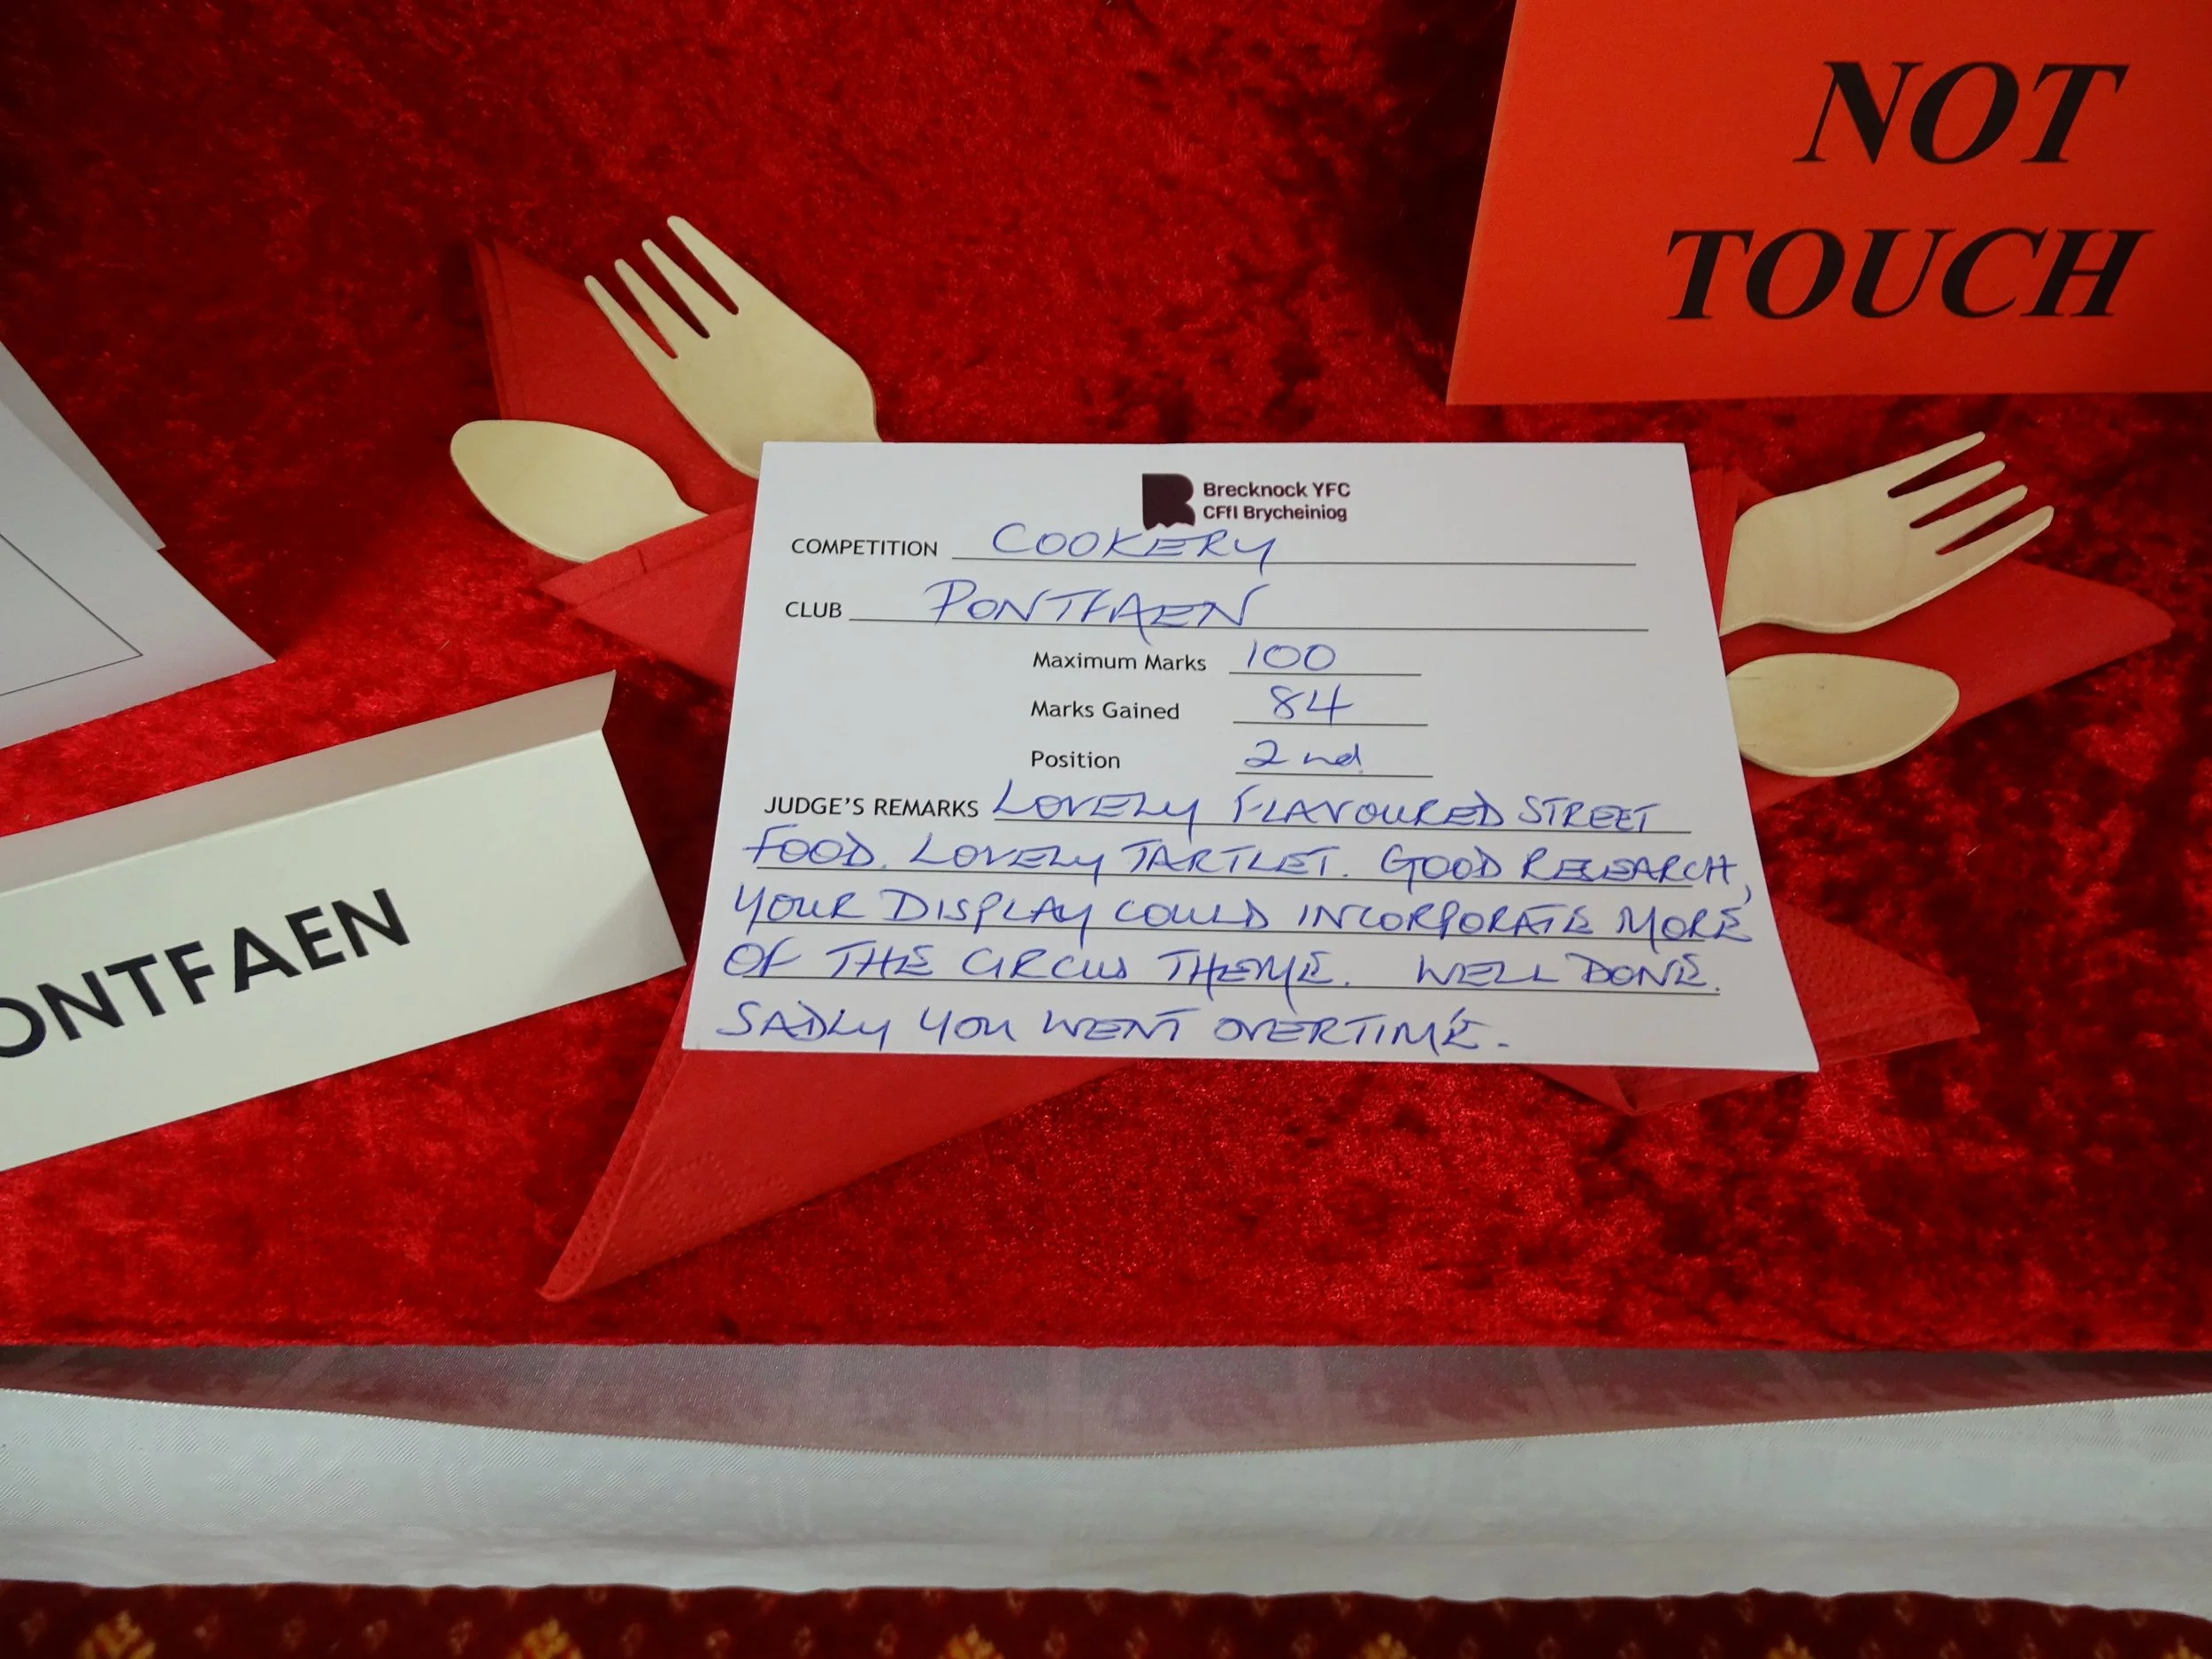 NOT
TOUCH
Brecknock YFC
CFfI Brycheiniog
COMPETITION COOKERY
CLUB PONTFAEN
Maximum Marks 100
Marks Gained 84
Position 2nd
JUDGE'S REMARKS LOVELY FLAVOURED STREET
FOOD. LOVELY TARTLET. GOOD RESEARCH,
YOUR DISPLAY COULD INCORPORATE MORE
OF THE CIRCUS THEME. WELL DONE.
SADLY YOU WENT OVERTIME.
ONTFAEN